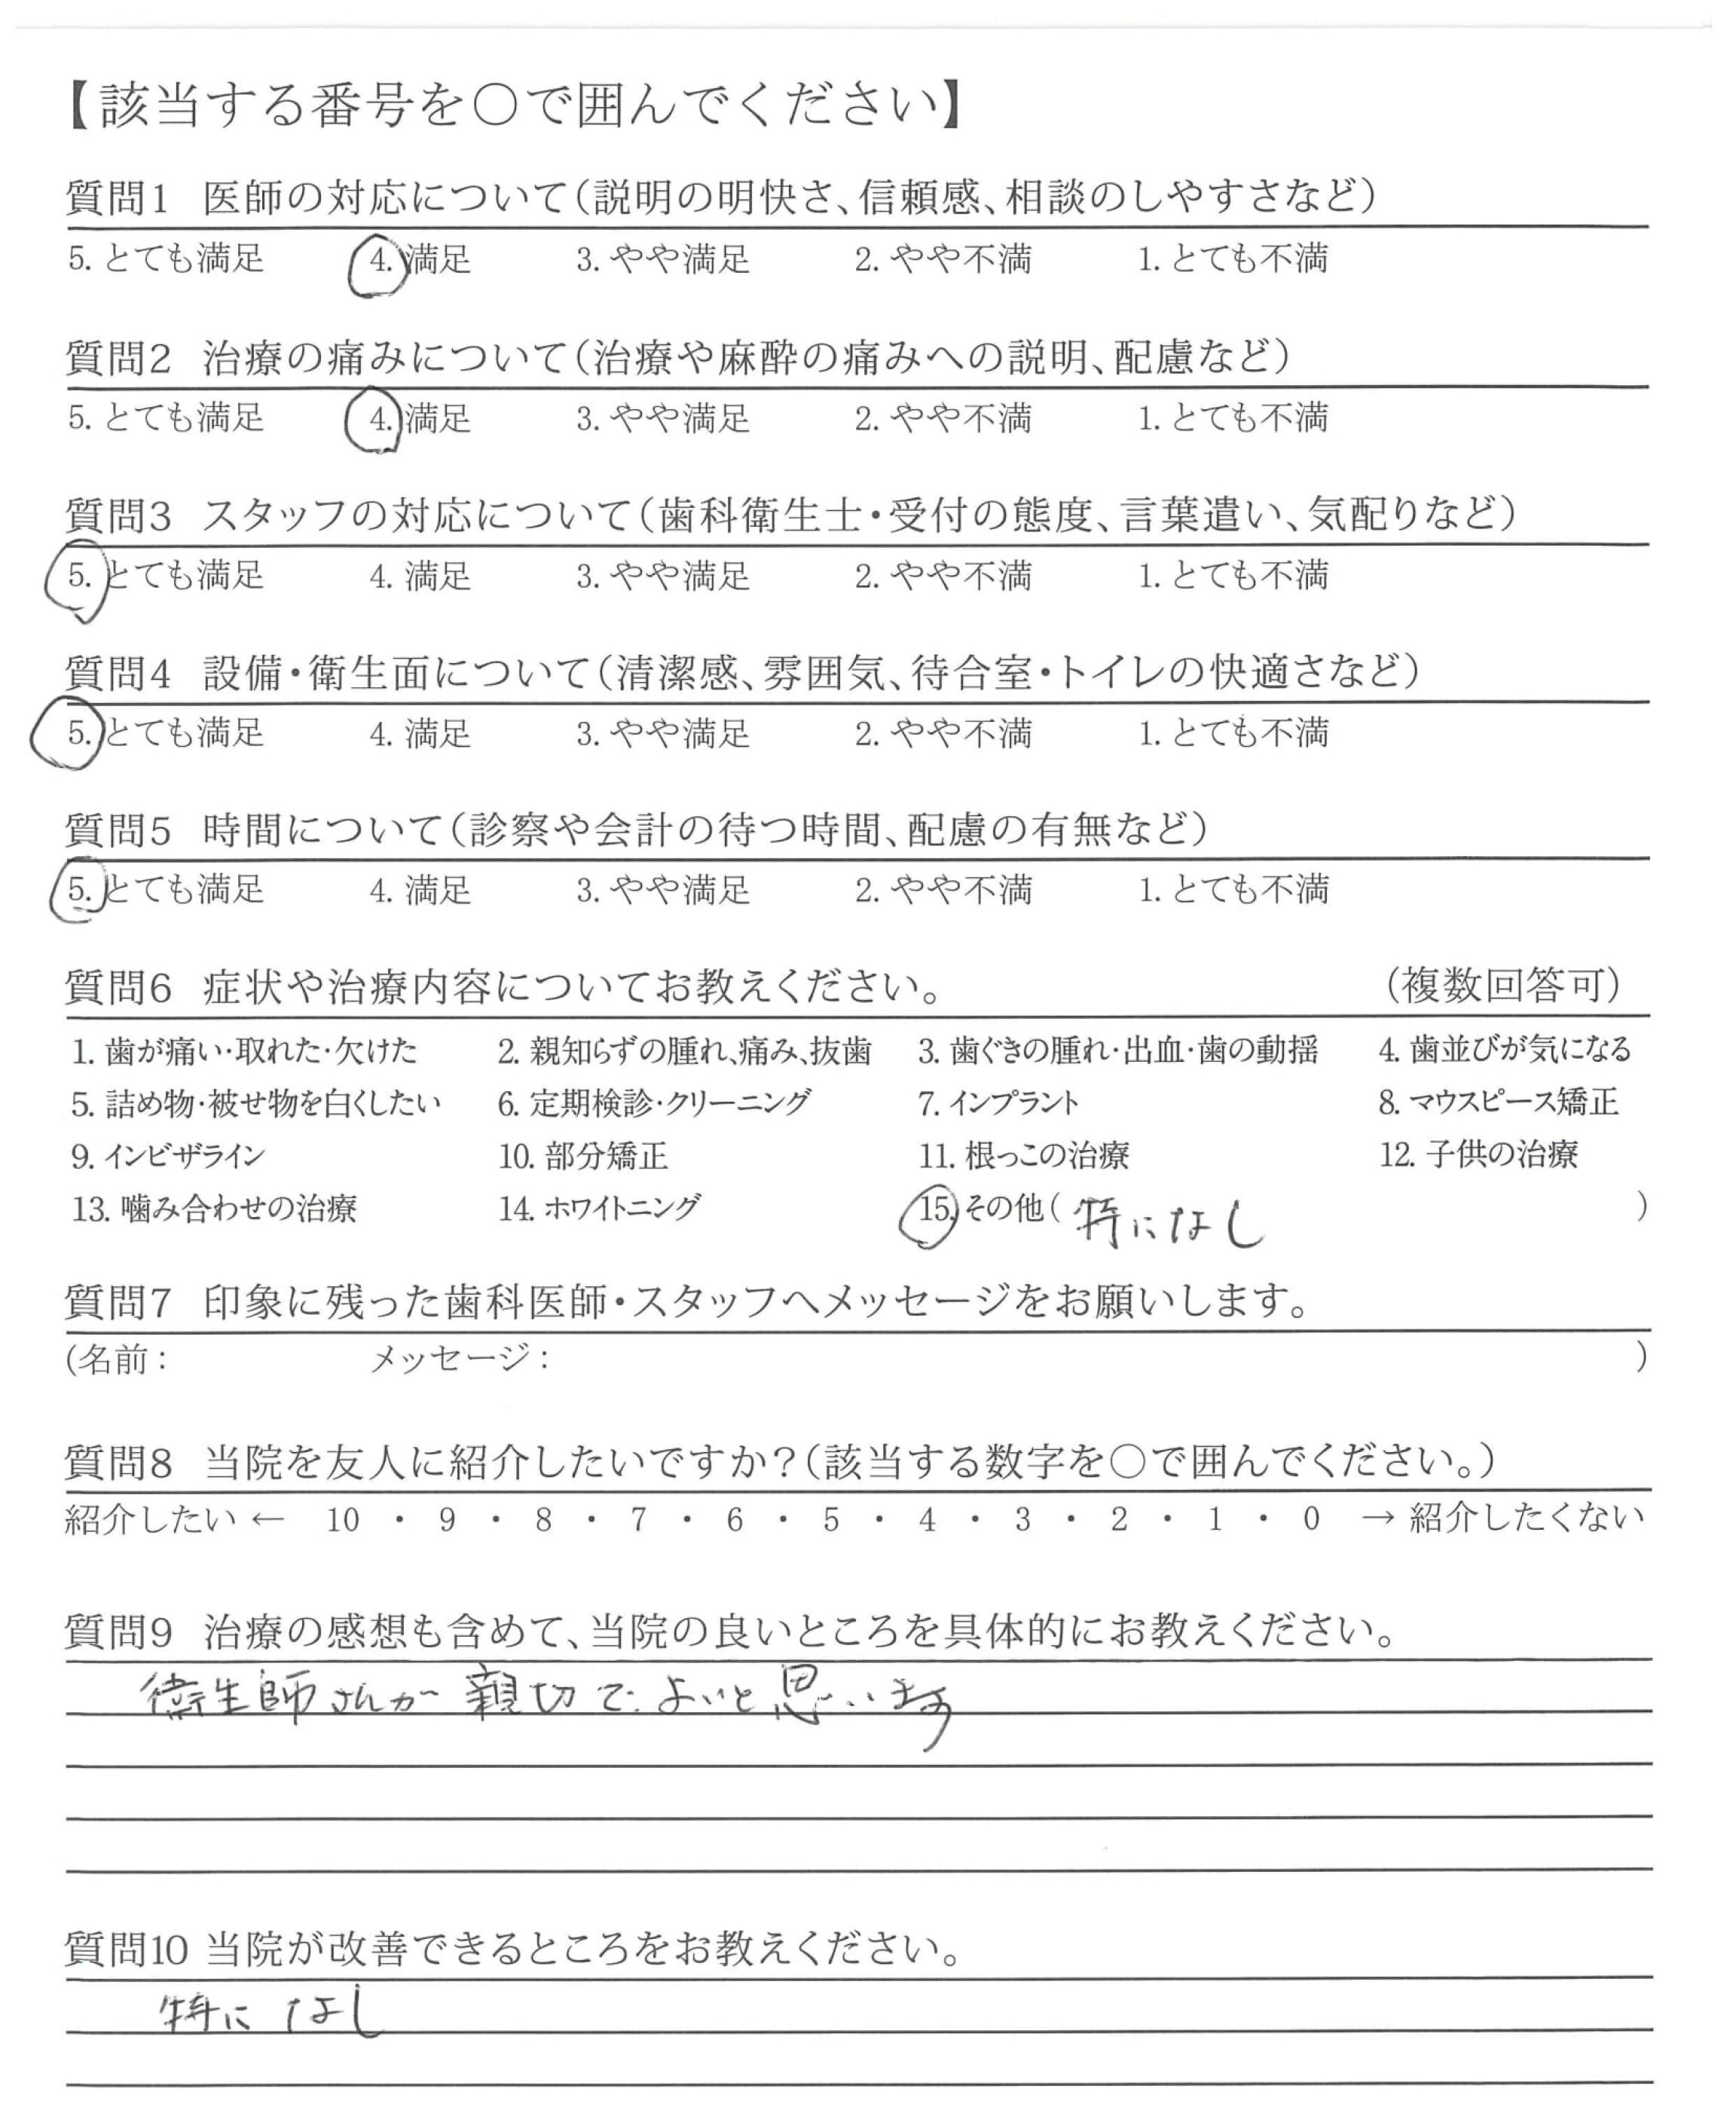 【該当する番号を○で囲んでください】
質問1 医師の対応について（説明の明快さ、信頼感、相談のしやすさなど）
5. とても満足 4. 満足 3. やや満足 2. やや不満 1. とても不満
質問2 治療の痛みについて（治療や麻酔の痛みへの説明、配慮など）
5. とても満足 4. 満足 3. やや満足 2. やや不満 1. とても不満
質問3 スタッフの対応について（歯科衛生士・受付の態度、言葉遣い、気配りなど）
5. とても満足 4. 満足 3. やや満足 2. やや不満 1. とても不満
質問4 設備・衛生面について（清潔感、雰囲気、待合室・トイレの快適さなど）
5. とても満足 4. 満足 3. やや満足 2. やや不満 1. とても不満
質問5 時間について（診察や会計の待つ時間、配慮の有無など）
5. とても満足 4. 満足 3. やや満足 2. やや不満 1. とても不満
質問6 症状や治療内容についてお教えください。 （複数回答可）
1. 歯が痛い・取れた・欠けた 2. 親知らずの腫れ、痛み、抜歯 3. 歯ぐきの腫れ・出血・歯の動揺 4. 歯並びが気になる
5. 詰め物・被せ物を白くしたい 6. 定期検診・クリーニング 7. インプラント 8. マウスピース矯正
9. インビザライン 10. 部分矯正 11. 根っこの治療 12. 子供の治療
13. 噛み合わせの治療 14. ホワイトニング 15. その他（ 特になし ）
質問7 印象に残った歯科医師・スタッフへメッセージをお願いします。
（名前： メッセージ： ）
質問8 当院を友人に紹介したいですか？（該当する数字を○で囲んでください。）
紹介したい ← 10 ・ 9 ・ 8 ・ 7 ・ 6 ・ 5 ・ 4 ・ 3 ・ 2 ・ 1 ・ 0 → 紹介したくない
質問9 治療の感想も含めて、当院の良いところを具体的にお教えください。
衛生師さんが親切で、よいと思います
質問10 当院が改善できるところをお教えください。
特になし